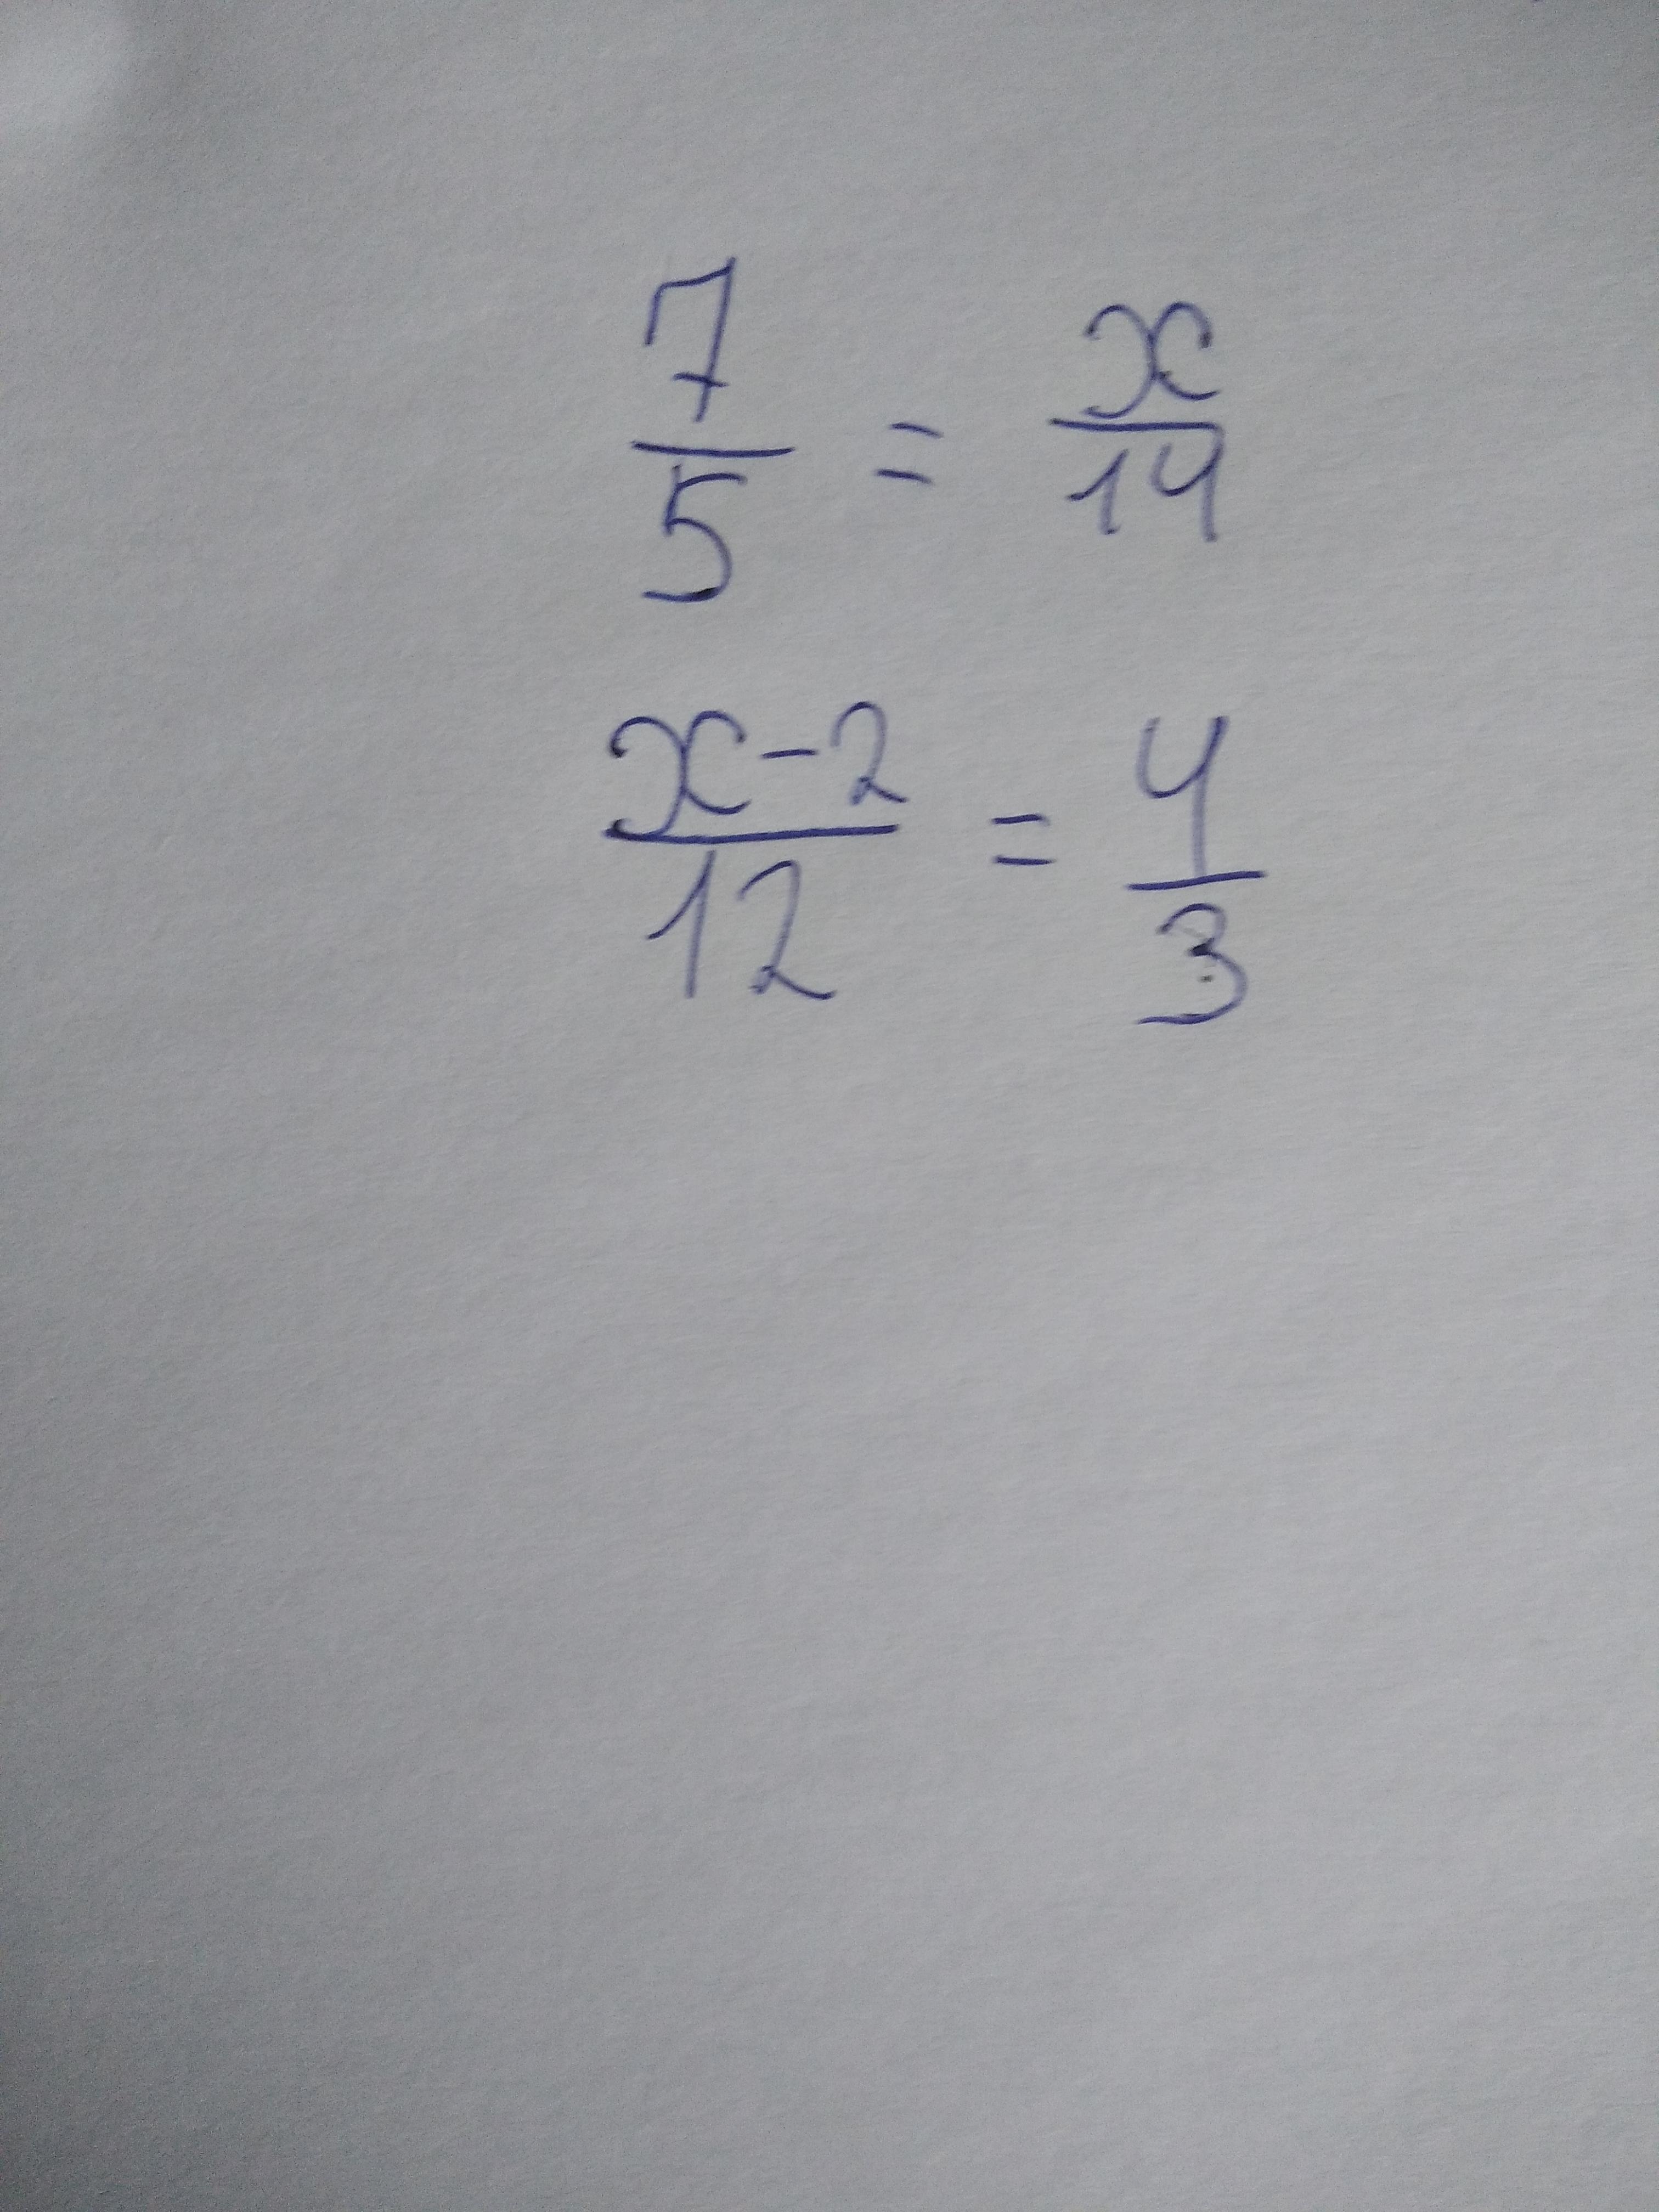 7/5 = x/14
x-2/12 = 4/3